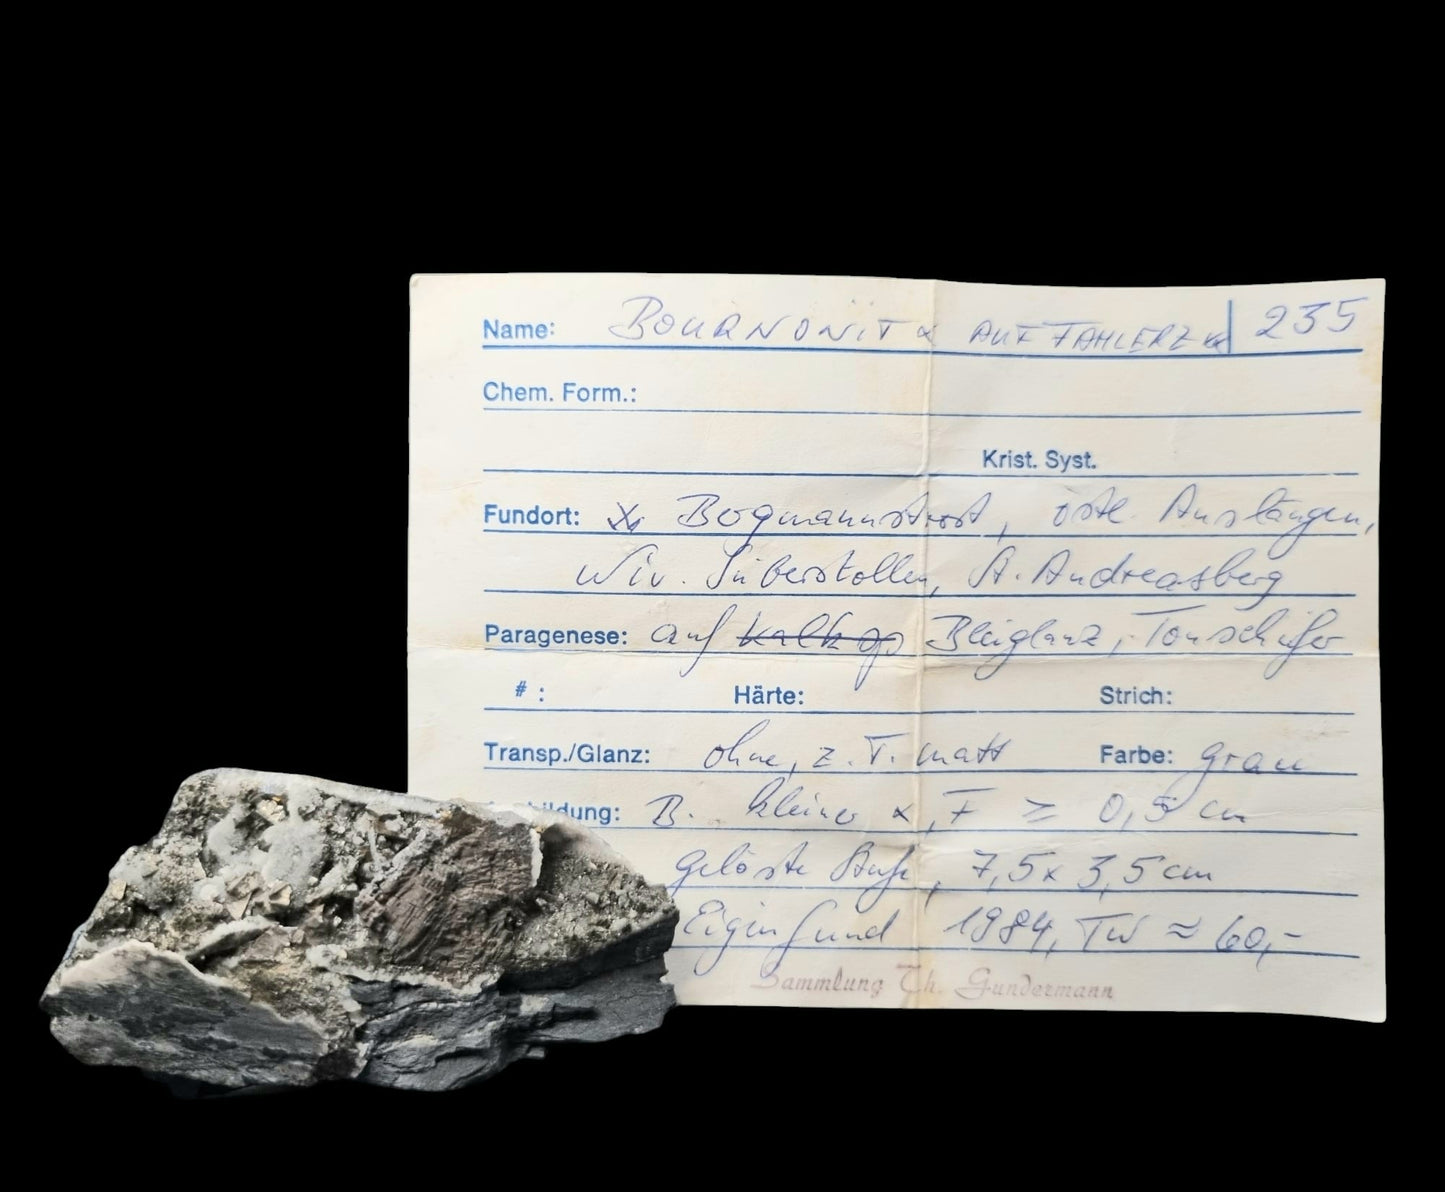 Name: BOURNONIT x AUF FAHLERZ xx 235
Chem. Form.:
Krist. Syst.
Fundort: Bergmannstrost, östl. Auslängen,
Niv. Sieberstollen, St. Andreasberg
Paragenese: auf Kalksp Bleiglanz, Tonschiefer
# : Härte: Strich:
Transp./Glanz: ohne, z. T. matt Farbe: grau
bildung: B. kleiner x, F ≥ 0,5 cm
gelöste Stufe, 7,5 x 3,5 cm
Eigenfund 1984, TW ≈ 60,-
Sammlung Th. Gundermann